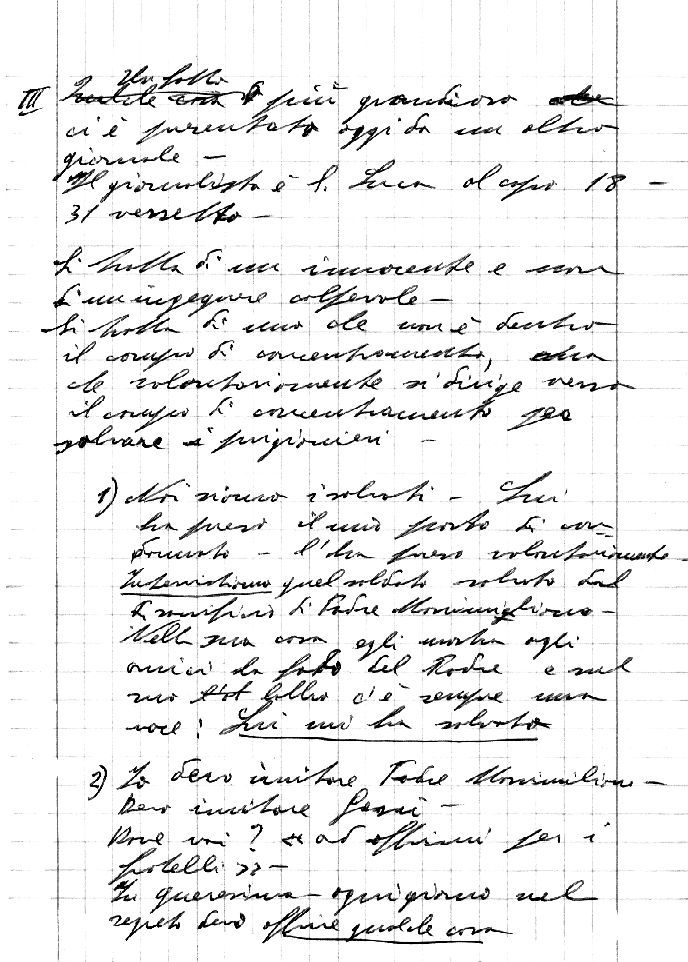 Un fatto
III Qualche cosa di più grandioso che
ci è presentato oggi da un altro
giornale –
Il giornalista è S. Luca al capo 18 –
31 versetto –
Si tratta di un innocente e non
di un ingegnere colpevole –
Si tratta di uno che non è dentro
il campo di concentramento, ma
che volontariamente si dirige verso
il campo di concentramento per
salvare i prigionieri –
1) Noi siamo i salvati – Lui
ha preso il mio posto di con-
dannato – l'ha preso volontariamente –
Intervistiamo quel soldato salvato dal
sacrificio di Padre Massimigliano –
Nella sua casa egli mostra agli
amici la foto del Padre e sul
suo labbro c'è sempre una
voce: Lui mi ha salvato
2) Io devo imitare Padre Massimiliano –
Devo imitare Gesù –
Dove vai? « ad offrirmi per i
fratelli » –
In quaresima – ogni giorno nel
segreto devo offrire qualche cosa